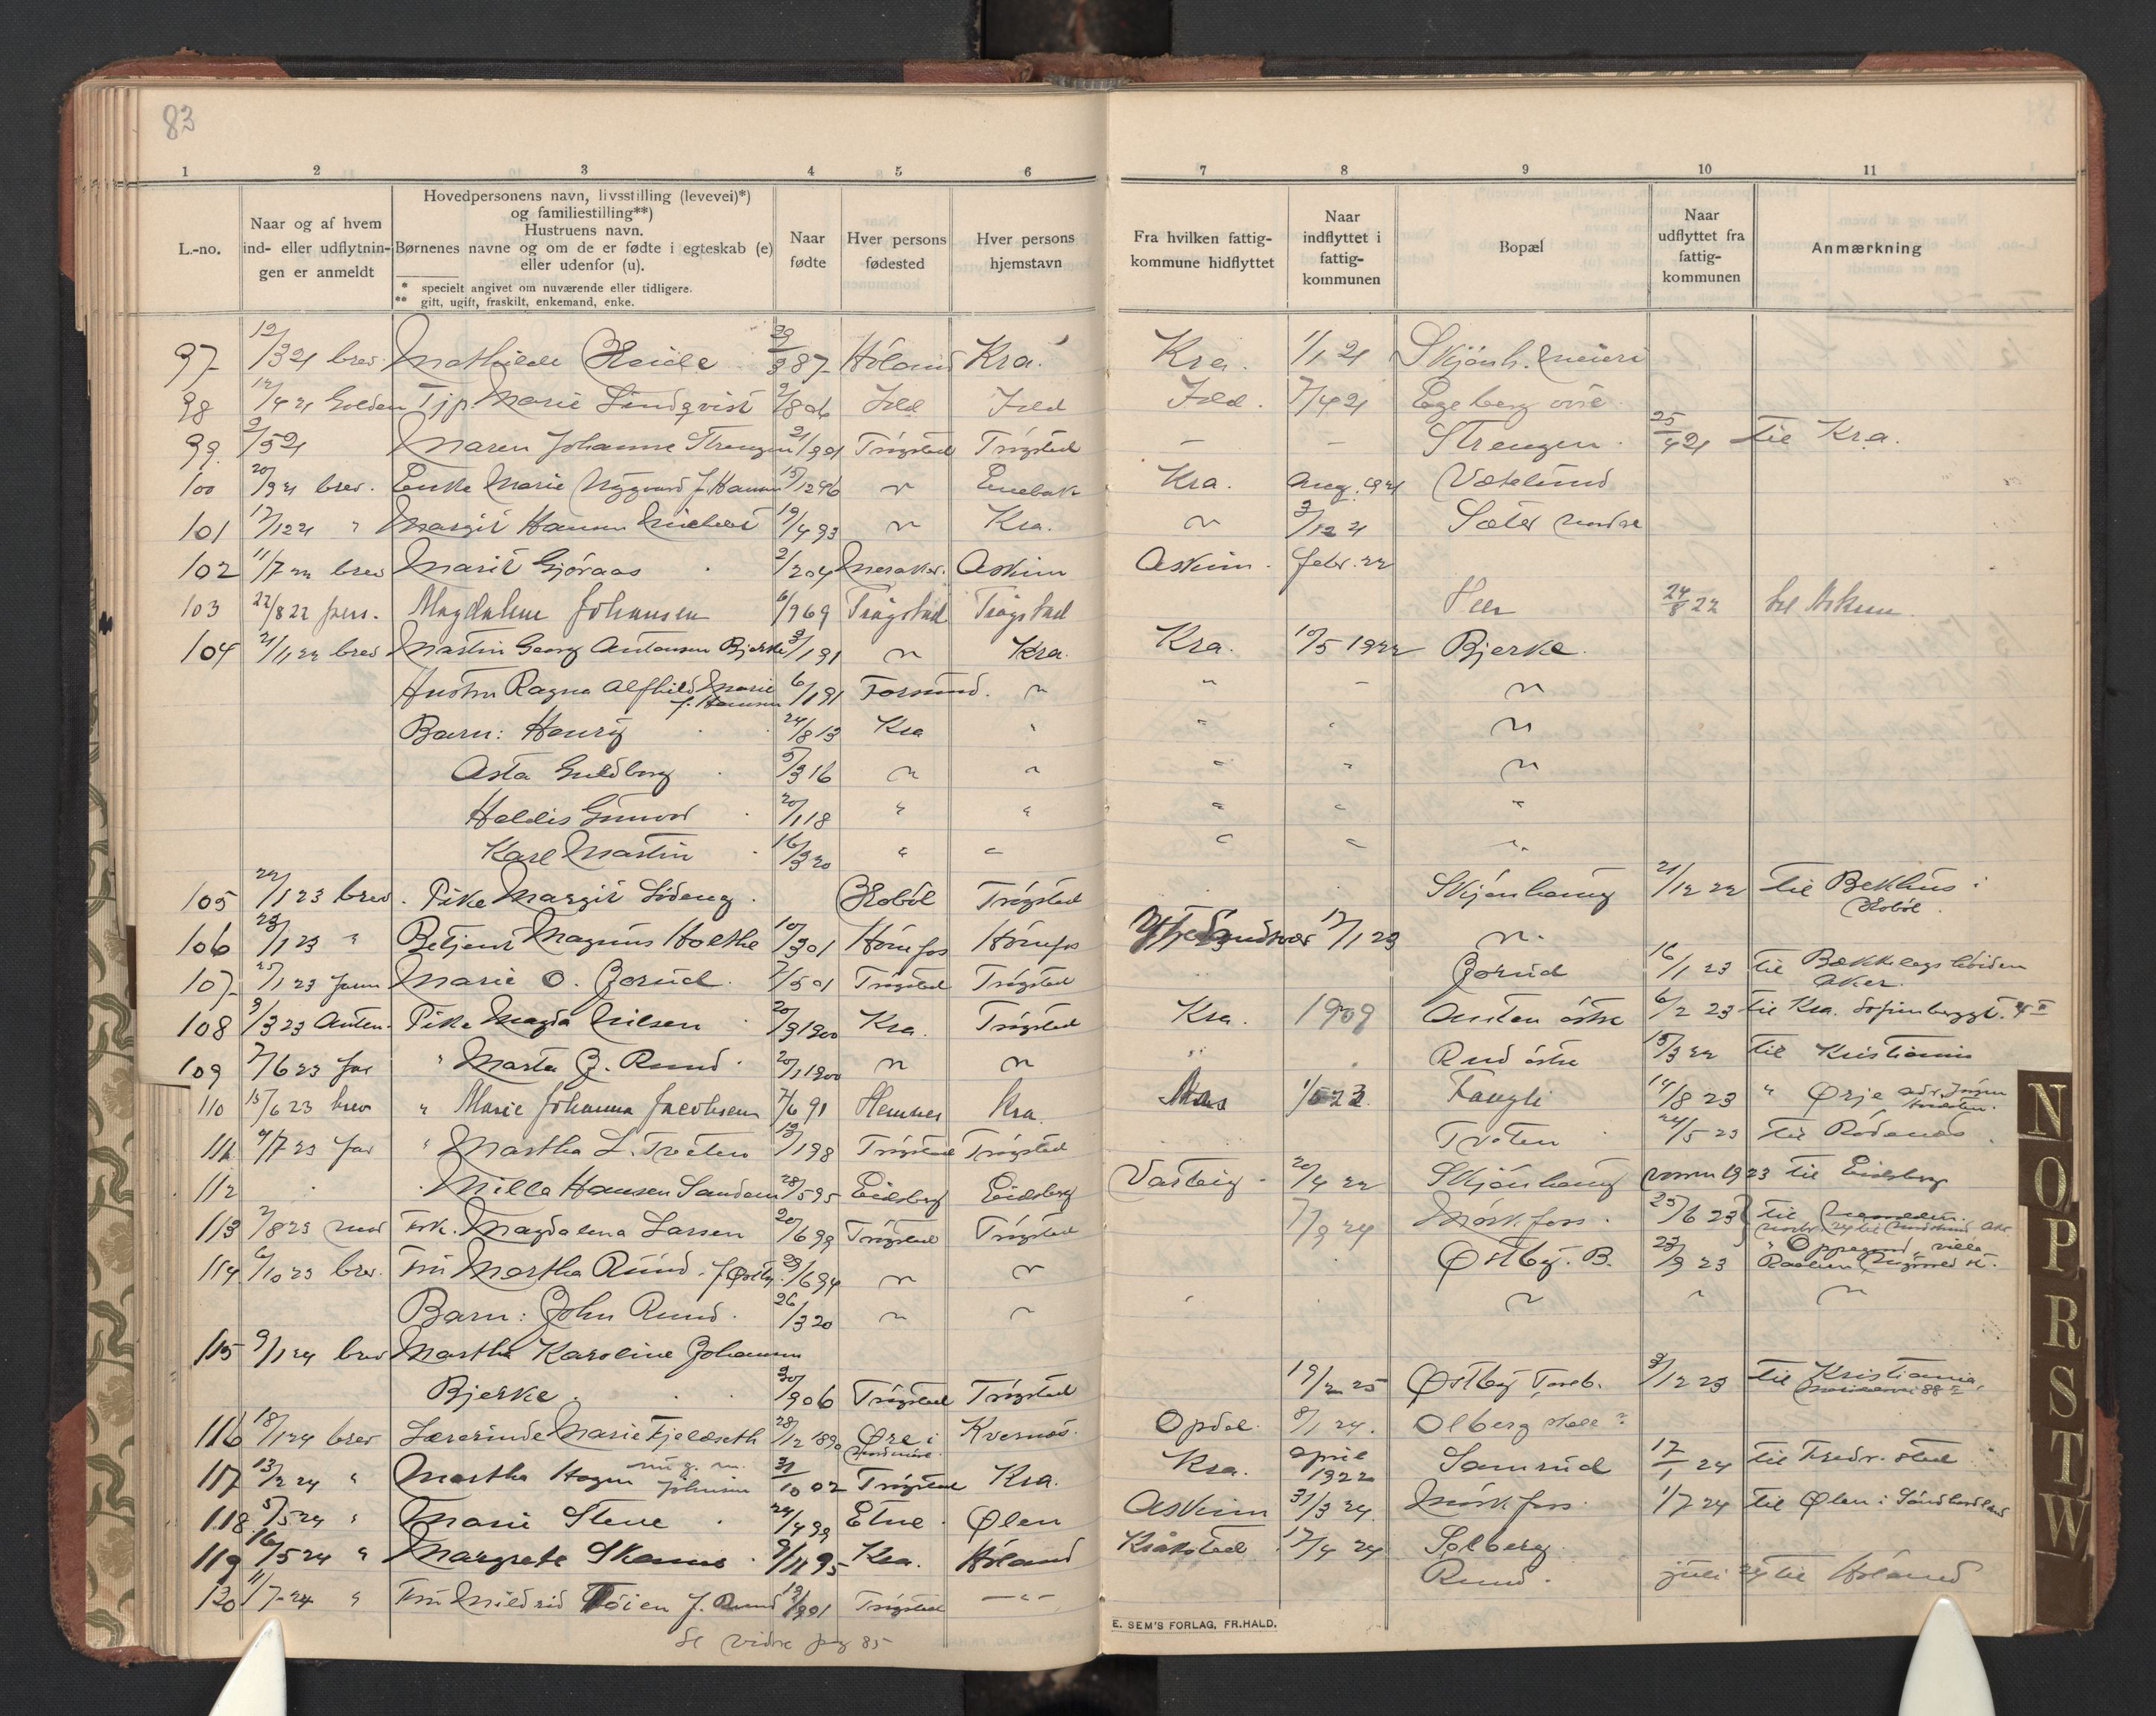 83
1 2 3 4 5 6 7 8 9 10 11
L.-no.
Naar og af hvem
ind- eller udflytnin-
gen er anmeldt
Hovedpersonens navn, livsstilling (levevei)*)
og familiestilling**)
Hustruens navn.
Børnenes navne og om de er fødte i egteskab (e)
eller udenfor (u).
* specielt angivet om nuværende eller tidligere.
** gift, ugift, fraskilt, enkemand, enke.
Naar
fødte
Hver persons
fødested
Hver persons
hjemstavn
Fra hvilken fattig-
kommune hidflyttet
Naar
indflyttet i
fattig-
kommunen
Bopæl
Naar
udflyttet fra
fattig-
kommunen
Anmærkning
97 19/3 21 brev Mathilde 29/3 87 Höland Kra. Kra. 1/1 21 Skjönh. meieri
98 12/4 21 Tjp. Marie Lindqvist 2/8 06 Idd Idd Idd. 7/4 21 Egeberg
99. 2/5 21 Maren Johanne Strengen 21/1 91 Trögstad Trögstad – – Strengen. 25/4 21 til Kra.
100 20/9 21 brev. Enke Marie Nygaard f. 15/12 96 " Enebak Kra. Aug. 1921
101 17/12 21 " Margit Hansen 19/4 93 " Kra. " 3/12 21 Sæter
102 11/7 22 brev Marit Gjöraas 2/2 04 Meraker. Askim Askim. febr. 22
103 22/8 22 pers. Magdalene Johansen 6/9 69 Trögstad Trögstad Heer 24/8 22 til Askim
104 21/11 22 brev Martin Georg Antonsen Bjerke 3/1 91 " Kra. Kra. 10/5 1922 Bjerke.
Hustru Ragna Alfhild Marie 6/1 91 Forsund. " " – "
f. Hansen
Barn: Henry 24/8 13 Kra " " " "
Asta Guldborg 5/3 16 " " " " "
Haldis Gunvor 20/1 18 " " " " "
Karl Martin 16/3 20 " " " " "
105 1 23 brev. Pike Margit Lideng Hoböl Trögstad Skjönhaug 21/12 22 til Bekhus i
Hoböl.
106 23/1 23 " Betjent Magnus Holthe 10/3 01 Hönefos Hönefos 17/1 23 "
107 25/1 23 Marie O. Jorud 7/5 01 Trögstad Trögstad Jorud 16/1 23 til Bækkelagshöiden
Aker.
108 3/3 23 Pike Magda Nilsen 20/9 1900 Kra. Trögstad Kra. 1909 östre 6/2 23 til Kra. Sofienberggt. 4 II
109 7/6 23 far " Marta J. Rund 20/1 1900 " " Rud östre 15/3 22 til Kristiania
110 15/6 23 brev " Marie Johanna Jacobsen 7/6 91 Hemnes Kra. 1/5 23 Fangli 14/8 23 " Ørje
111 9/7 23 far " Martha L. Tveten 13/1 98 Trögstad Trögstad Tveten 24/5 23 til Rödenes
112 " Milla Hansen Sandem 28/5 95 Eidsberg Eidsberg Varteig 20/4 22 Skjönhaug 1923 til Eidsberg
113 7/8 23 Frk. Magdalena Larsen 20/6 99 Trögstad Trögstad 7/9 24 Mörkfoss. 25/6 23 til
114 6/10 23 brev. Fru Martha Rund. f. Østby 29/6 94 " " Østby. B. 23/9 23 " Oppegaard, villa
Barn: John Rund. 26/3 20 " " " " "
115 9/1 24 brev Martha Karoline Johansen
Bjerke. 30/ 906 Trögstad Trögstad 19/2 25 Østby Toreb. 3/12 23 til Kristiania,
116 18/1 24 brev Lærerinde Marie Fjeldseth 28/12 1890 Øre i Kvernes. Opdal. 8/1 24. Olberg skole ?
Nordmöre.
117 13/2 24 " Martha Hagen 31/10 02 Trögstad Kra. Kra. april 1922 Samrud 17/1 24 til Fredr. stad
118. 5/5 24 " Marie Stene 24/4 99 Etne Ølen Askim 31/3 24 Mörkfoss 1/7 24 til Ølen i Söndhordland
119 16/5 24 " Margrete 9/11 95 Kra. Höland Kråkstad 17/4 24 Solberg
120 11/7 24 " Fru Mildrid Töien f. Rund 19/1 901 Trögstad –"– Rund. juli 24 til Höland
Se vidre pag 85
E. SEM'S FORLAG, FR.HALD.
N
O
P
R
S
T
W